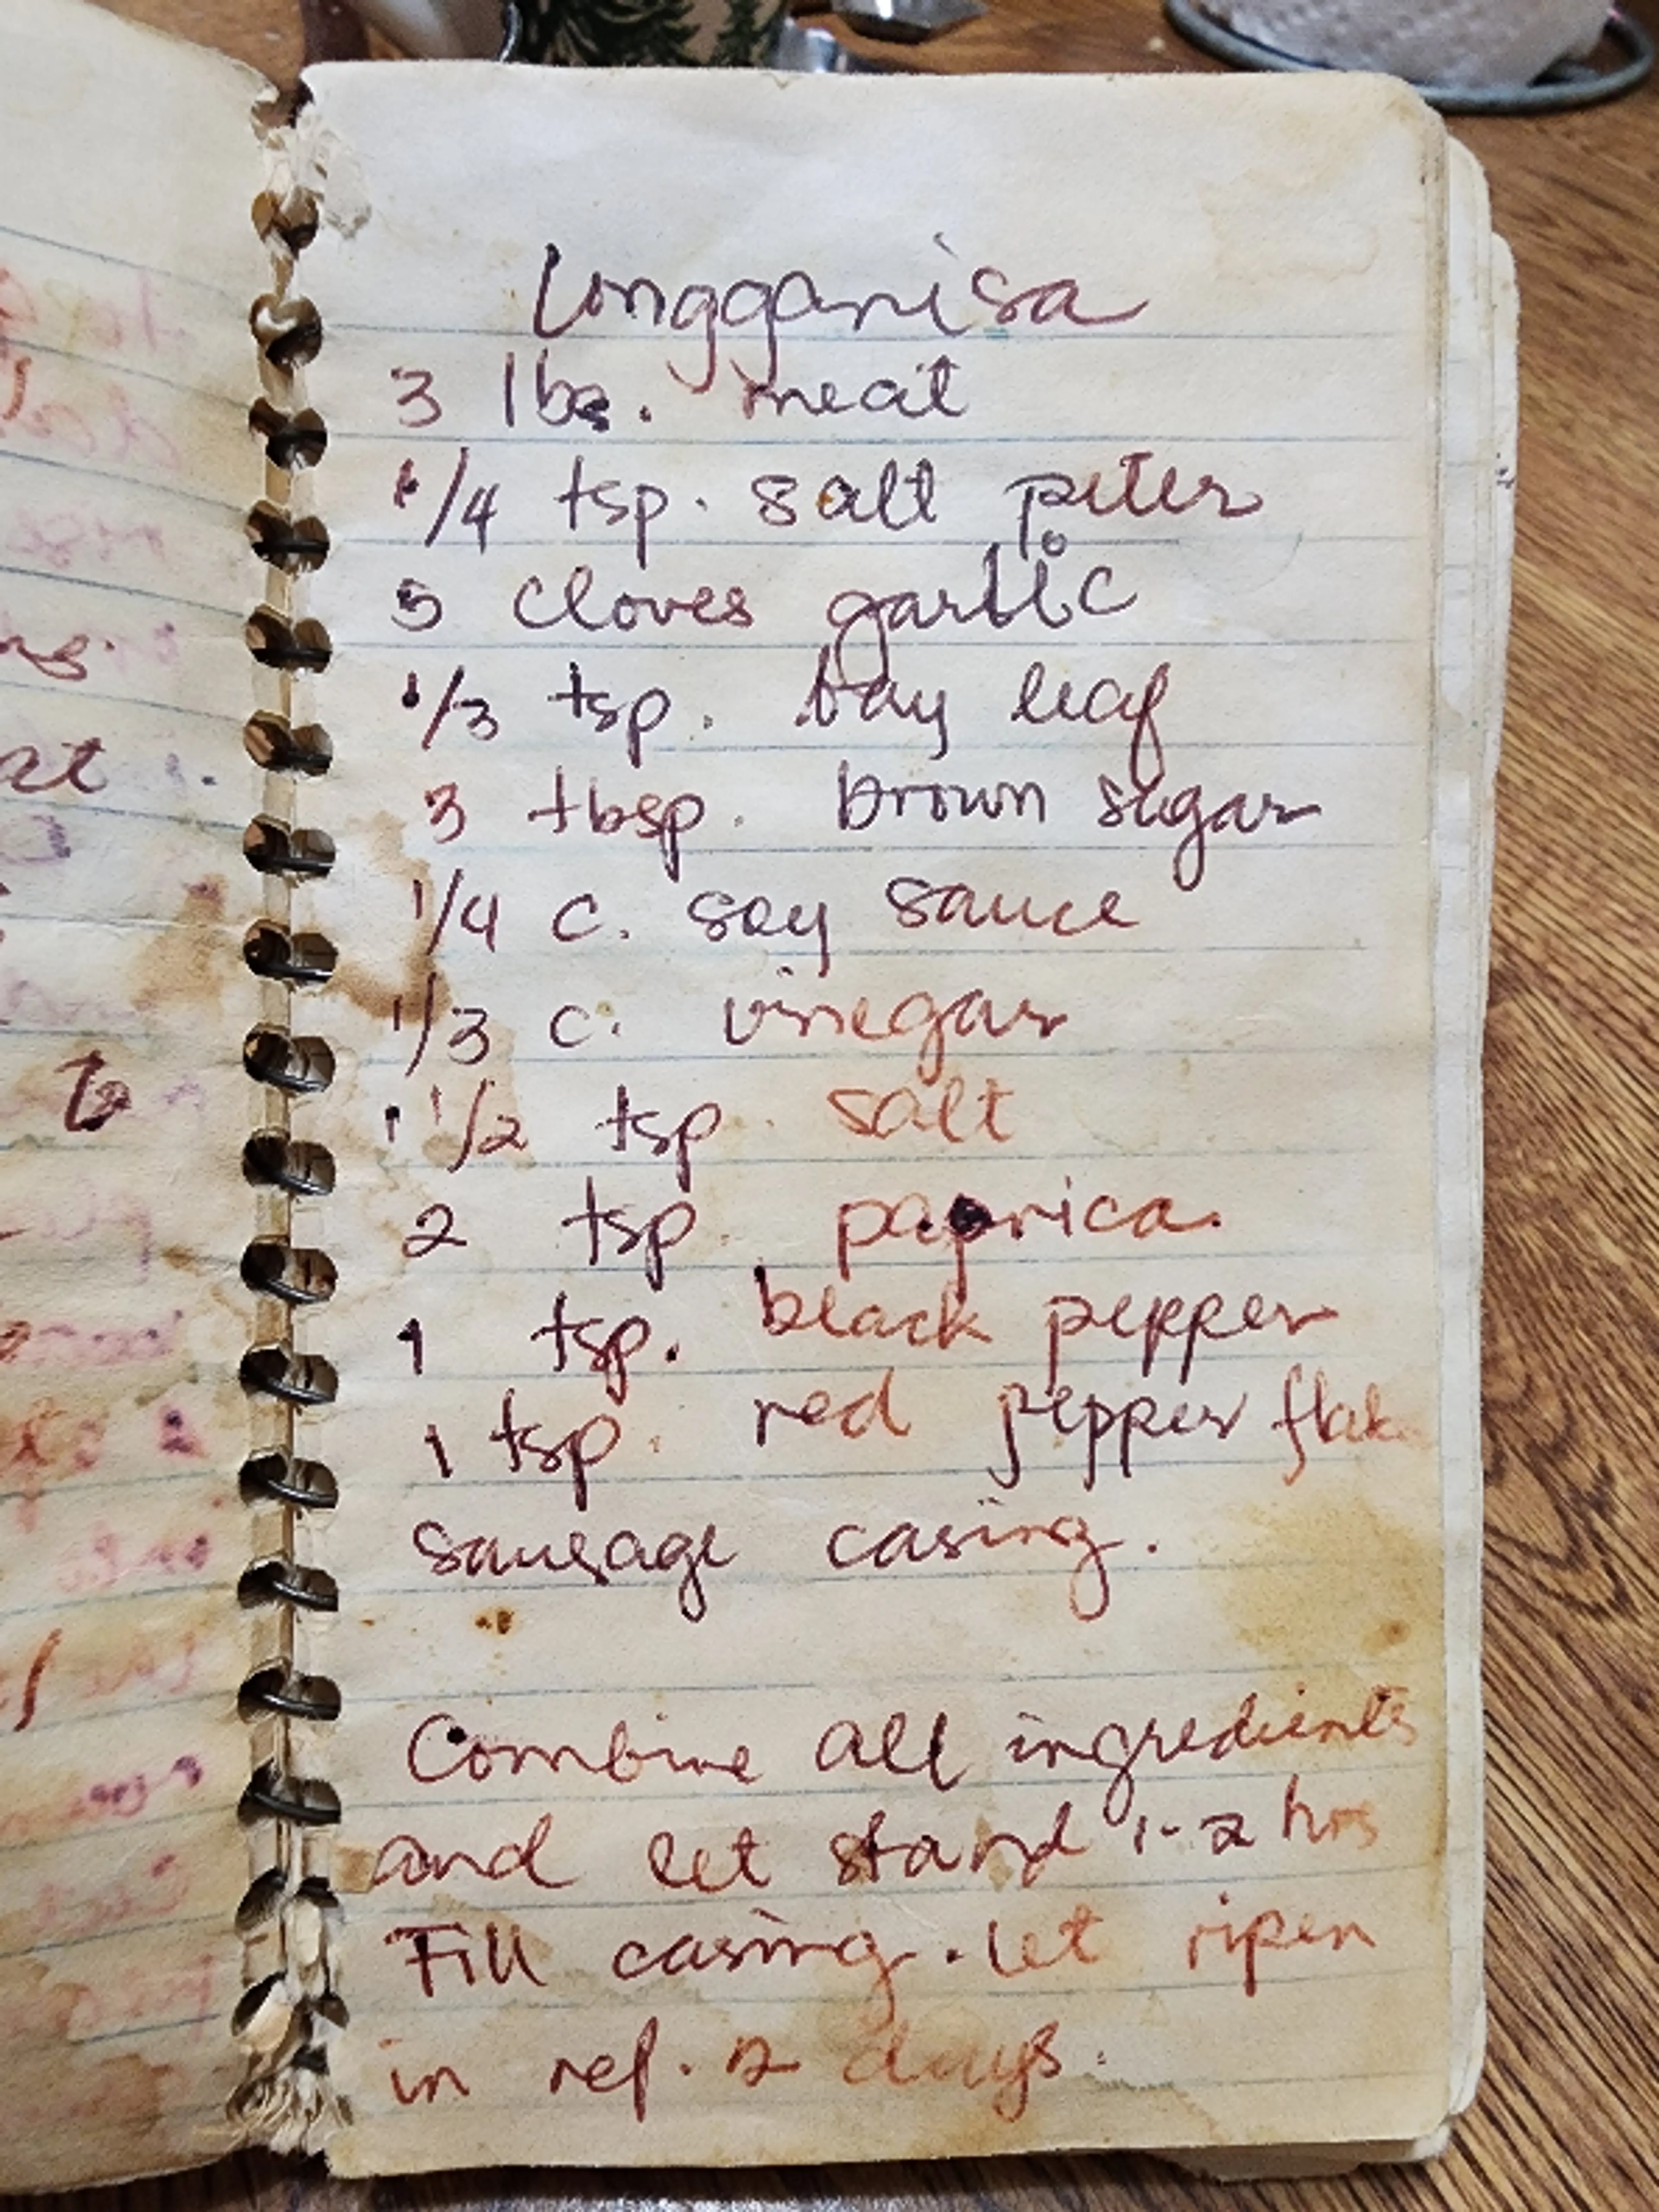 Longganisa
3 lbs. meat
1/4 tsp. salt peter
5 cloves garlic
1/3 tsp. bay leaf
3 tbsp. brown sugar
1/4 c. soy sauce
1/3 c. vinegar
1 1/2 tsp. salt
2 tsp paprica.
1 tsp. black pepper
1 tsp. red pepper flak
sausage casing.
Combine all ingredients
and let stand 1-2 hrs
Fill casing. let ripen
in ref. 2 days.